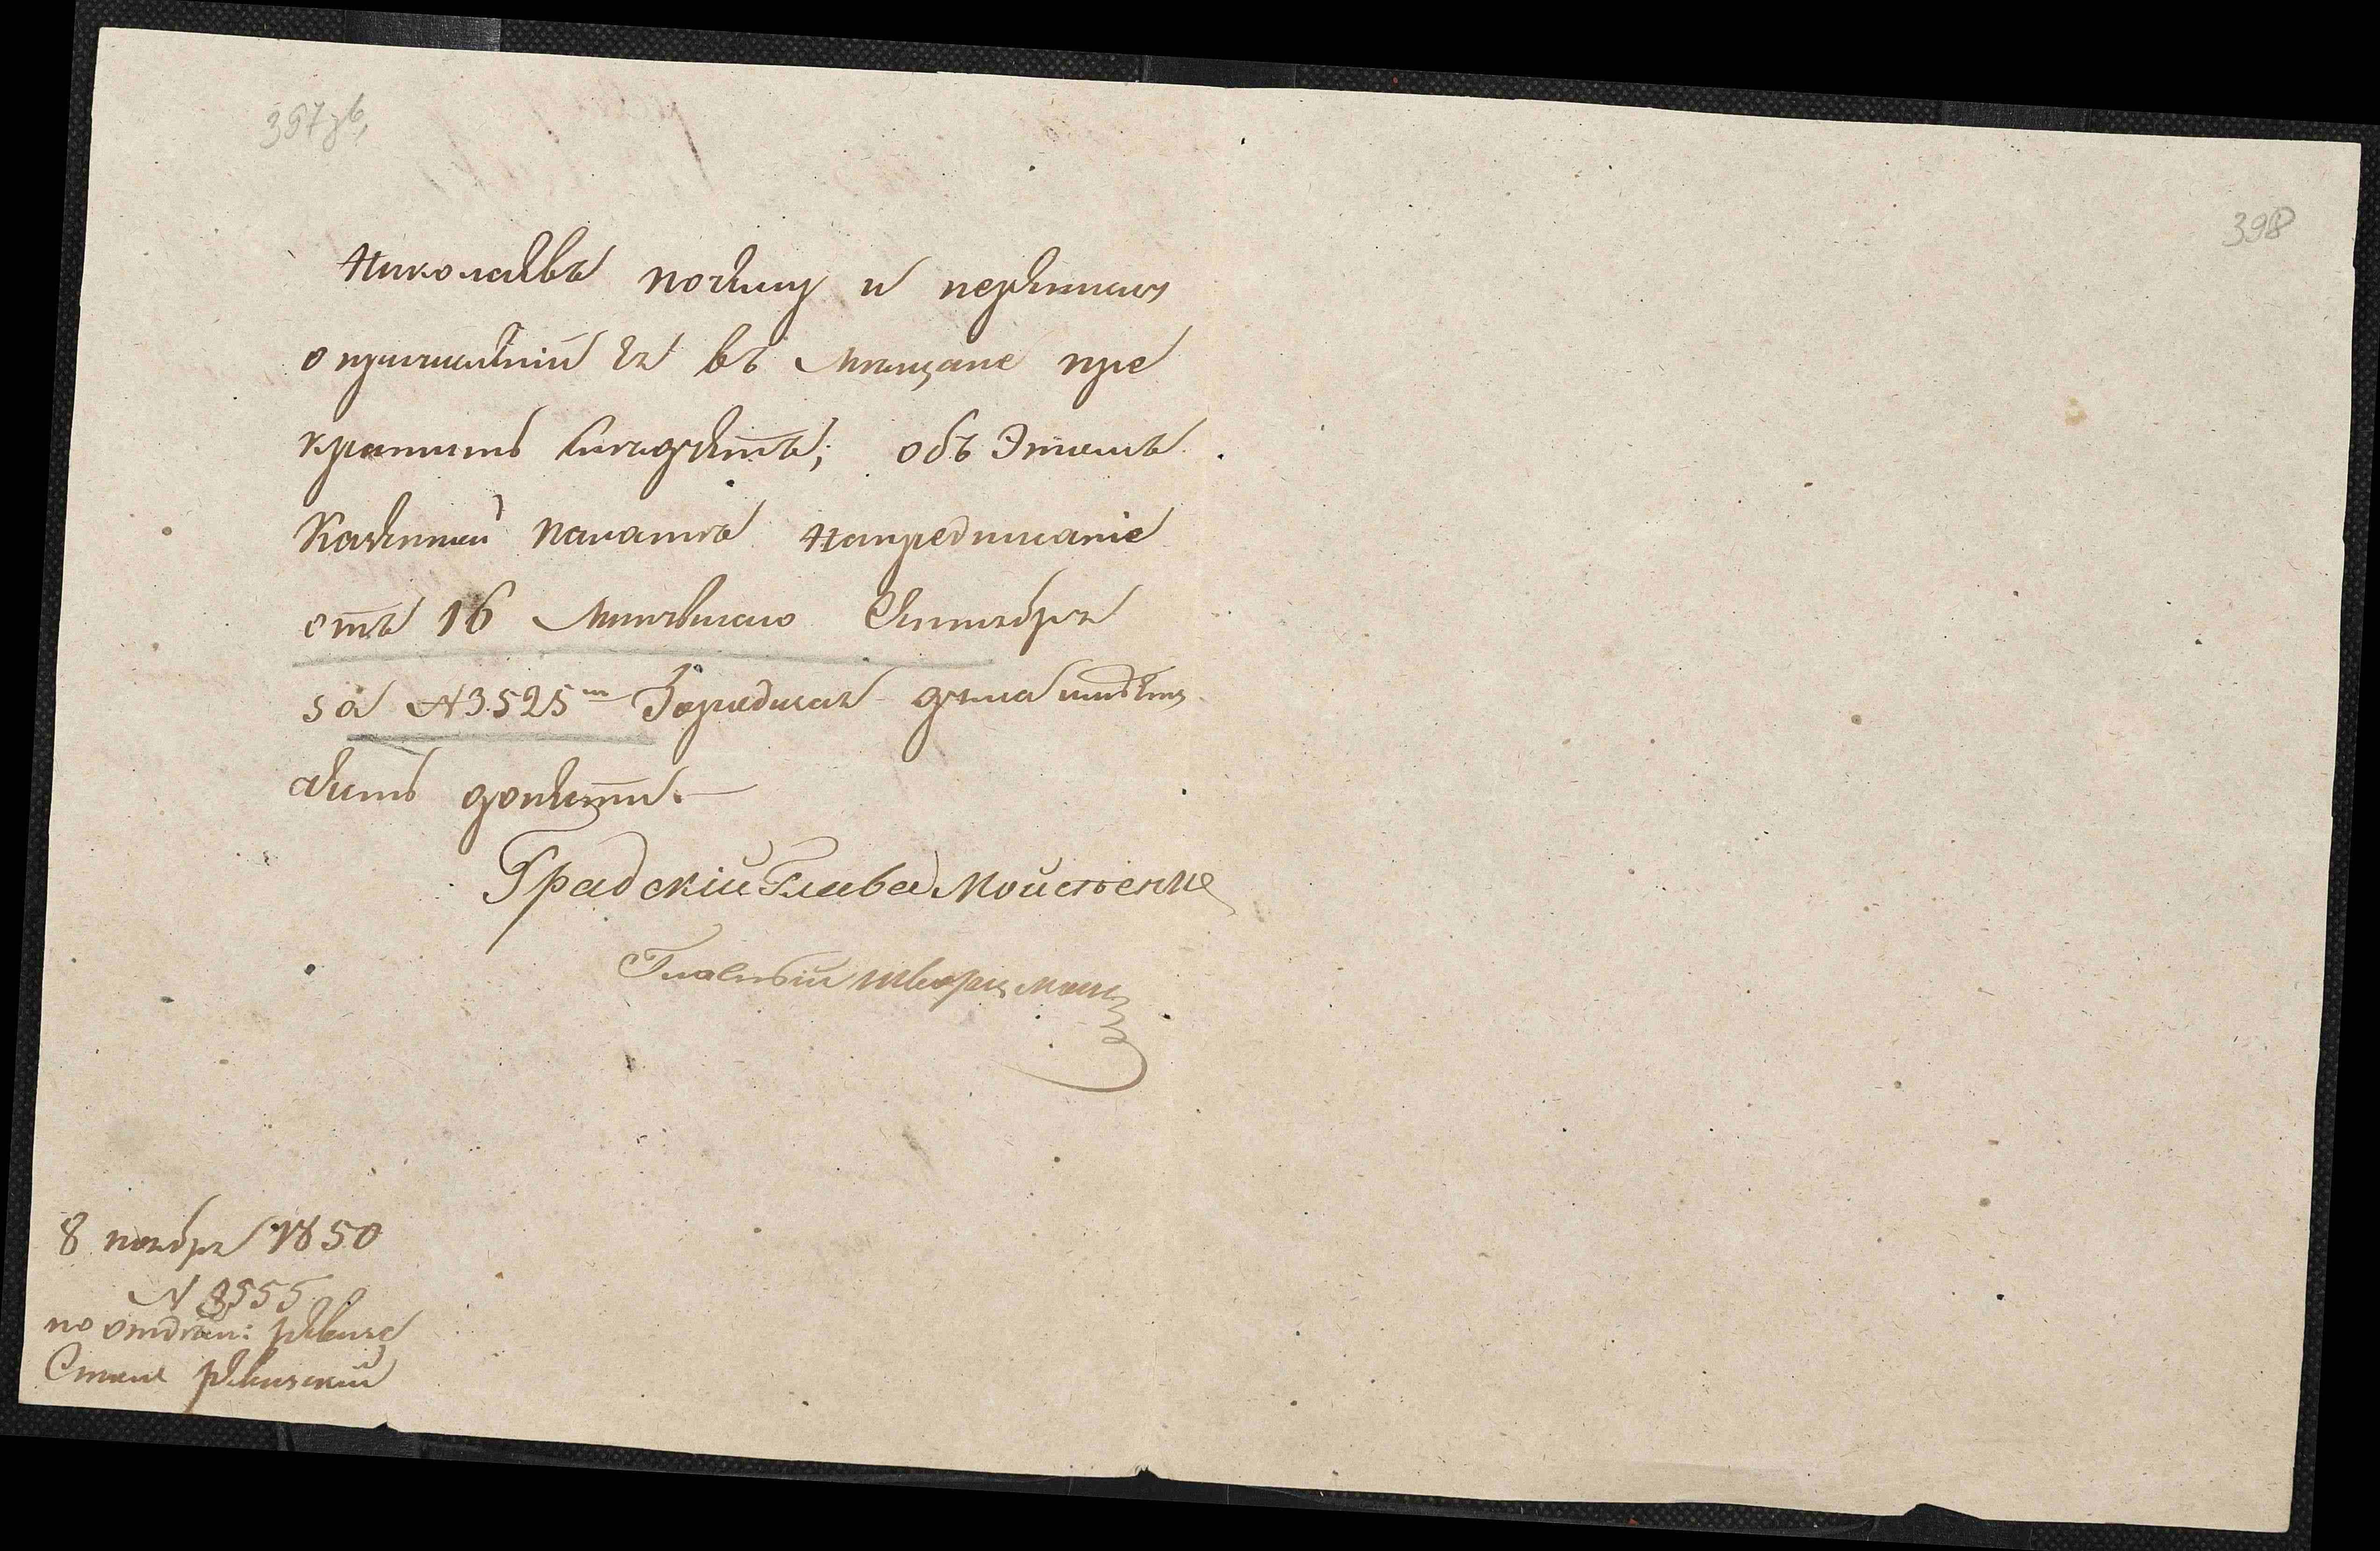 397 об,
398
Николаевъ почему и переписку
о причисленіи ея въ мещане пре
кратить следуетъ; объ этомъ
Казенной палате на предписаніе
отъ 16 минувшаго Сентября
за №3525 м Городская дума имеетъ
честь донести.—
Градскій Глава Мойсѣенко
Гласный
8 ноября 1850
№ 3555
по отдѣлен: ревизс
Столе ревизскій